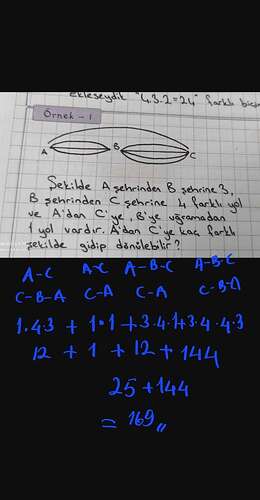 ekleseydik "4.3.2=24" farklı
Örnek - 1
A
B
C
Şekilde A şehrinden B şehrine 3,
B şehrinden C şehrine 4 farklı yol
ve A'dan C'ye, B'ye uğramadan
1 yol vardır. A'dan C'ye kaç farklı
şekilde gidip dönülebilir?
A-C A-C A-B-C A-B-C
C-B-A C-A C-A C-B-A
1.4.3 + 1.1 + 3.4.1 + 3.4.4.3
12 + 1 + 12 + 144
25 + 144
= 169,,